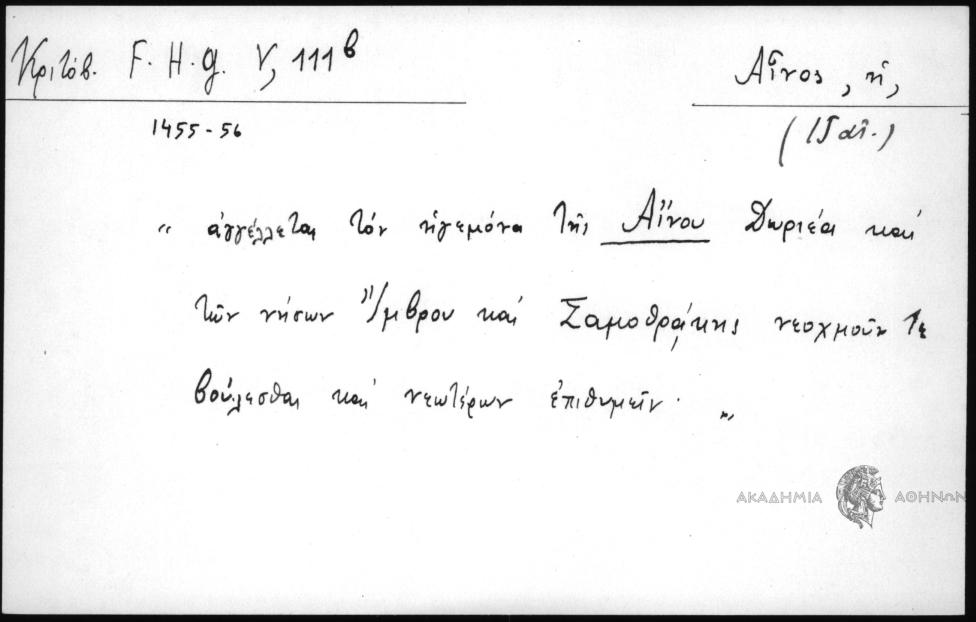 Κριτόβ. F. H. g. V, 111β
Αἶνος, ἡ,
1455-56
“ ἀγγέλλεται τόν ἡγεμόνα τῆς Αἴνου Δωριέα καί
τῶν νήσων Ἴμβρου καί Σαμοθράκης νεοχμοῦν τε
βούλεσθαι καί νεωτέρων ἐπιθυμεῖν. „
ΑΚΑΔΗΜΙΑ ΑΘΗΝΩΝ